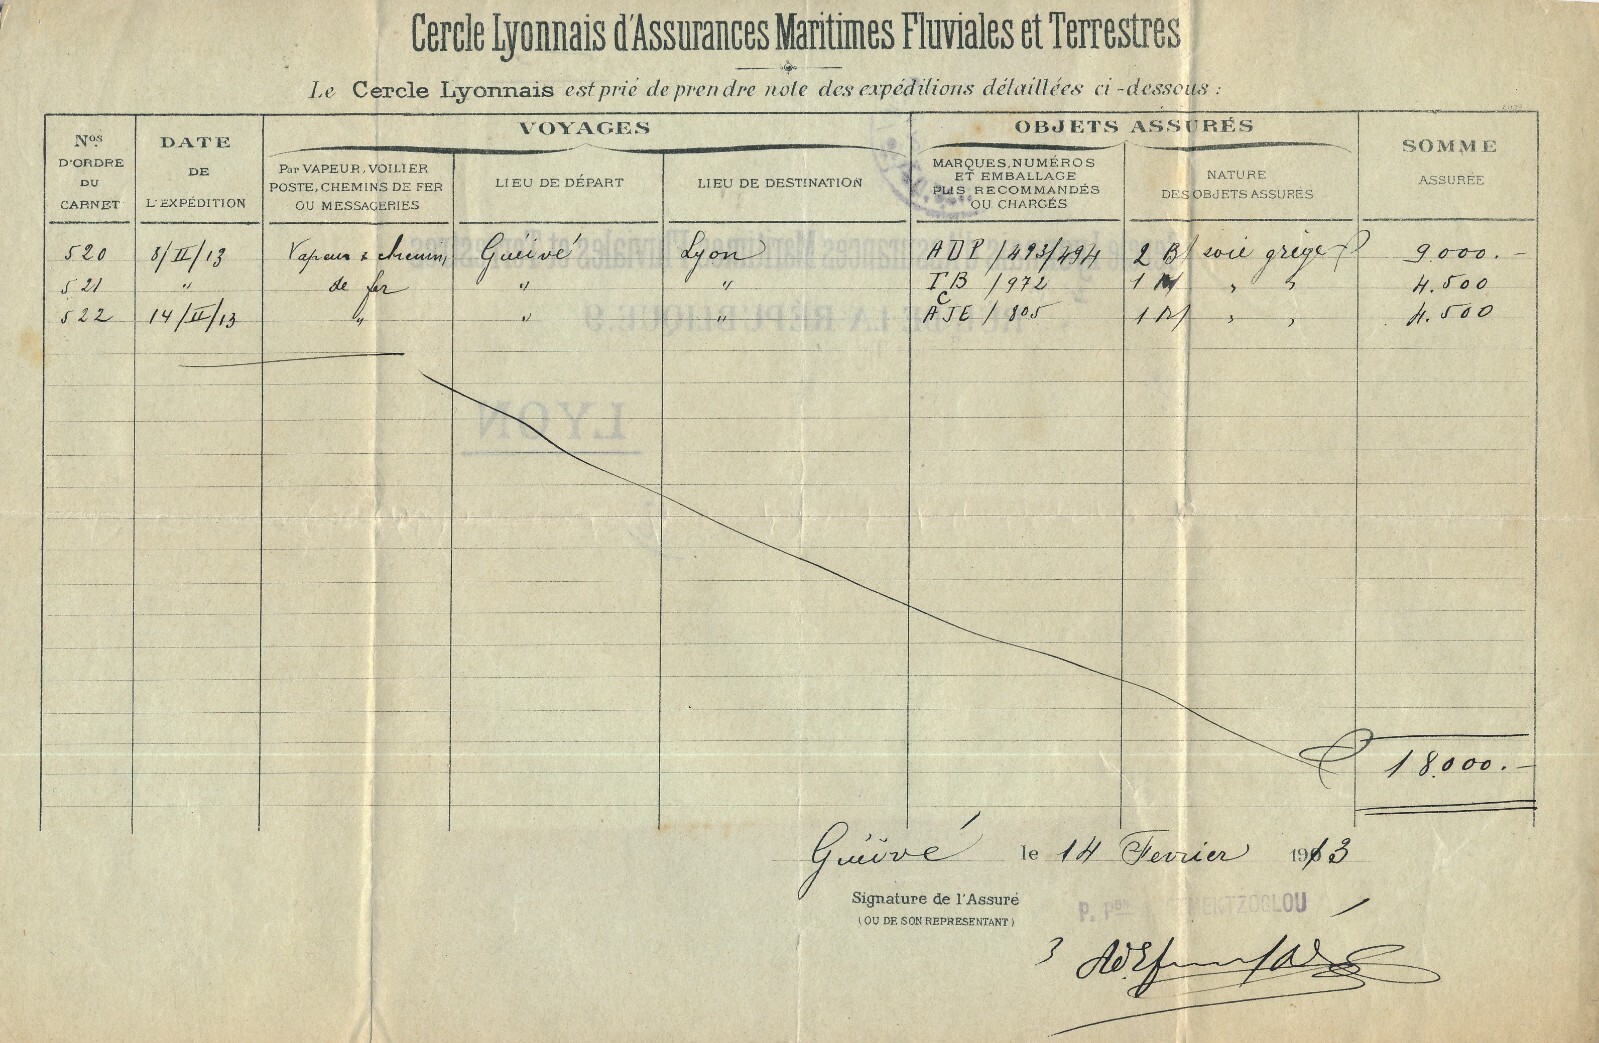 Cercle Lyonnais d'Assurances Maritimes Fluviales et Terrestres
Le Cercle Lyonnais est prié de prendre note des expéditions détaillées ci-dessous :
Nos D'ORDRE DU CARNET
DATE DE L'EXPÉDITION
VOYAGES
Par VAPEUR, VOILIER POSTE, CHEMINS DE FER OU MESSAGERIES
LIEU DE DÉPART
LIEU DE DESTINATION
OBJETS ASSURÉS
MARQUES, NUMÉROS ET EMBALLAGE PLIS RECOMMANDÉS OU CHARGÉS
NATURE DES OBJETS ASSURÉS
SOMME ASSURÉE
520 8/II/13 Vapeur & chemin Gueïvé Lyon ADP /493/494 2 B/ soie grège 9.000.-
521 " de fer " " IB /972 1 " " 4.500
522 14/II/13 " " " AJE /805 1 " " 4.500
18.000.-
Gueïvé le 14 Fevrier 1913
Signature de l'Assuré
(OU DE SON REPRESENTANT)
P. Pon
Cercle Lyonnais d'Assurances Maritimes Fluviales et Terrestres
RUE DE LA RÉPUBLIQUE, 9
LYON